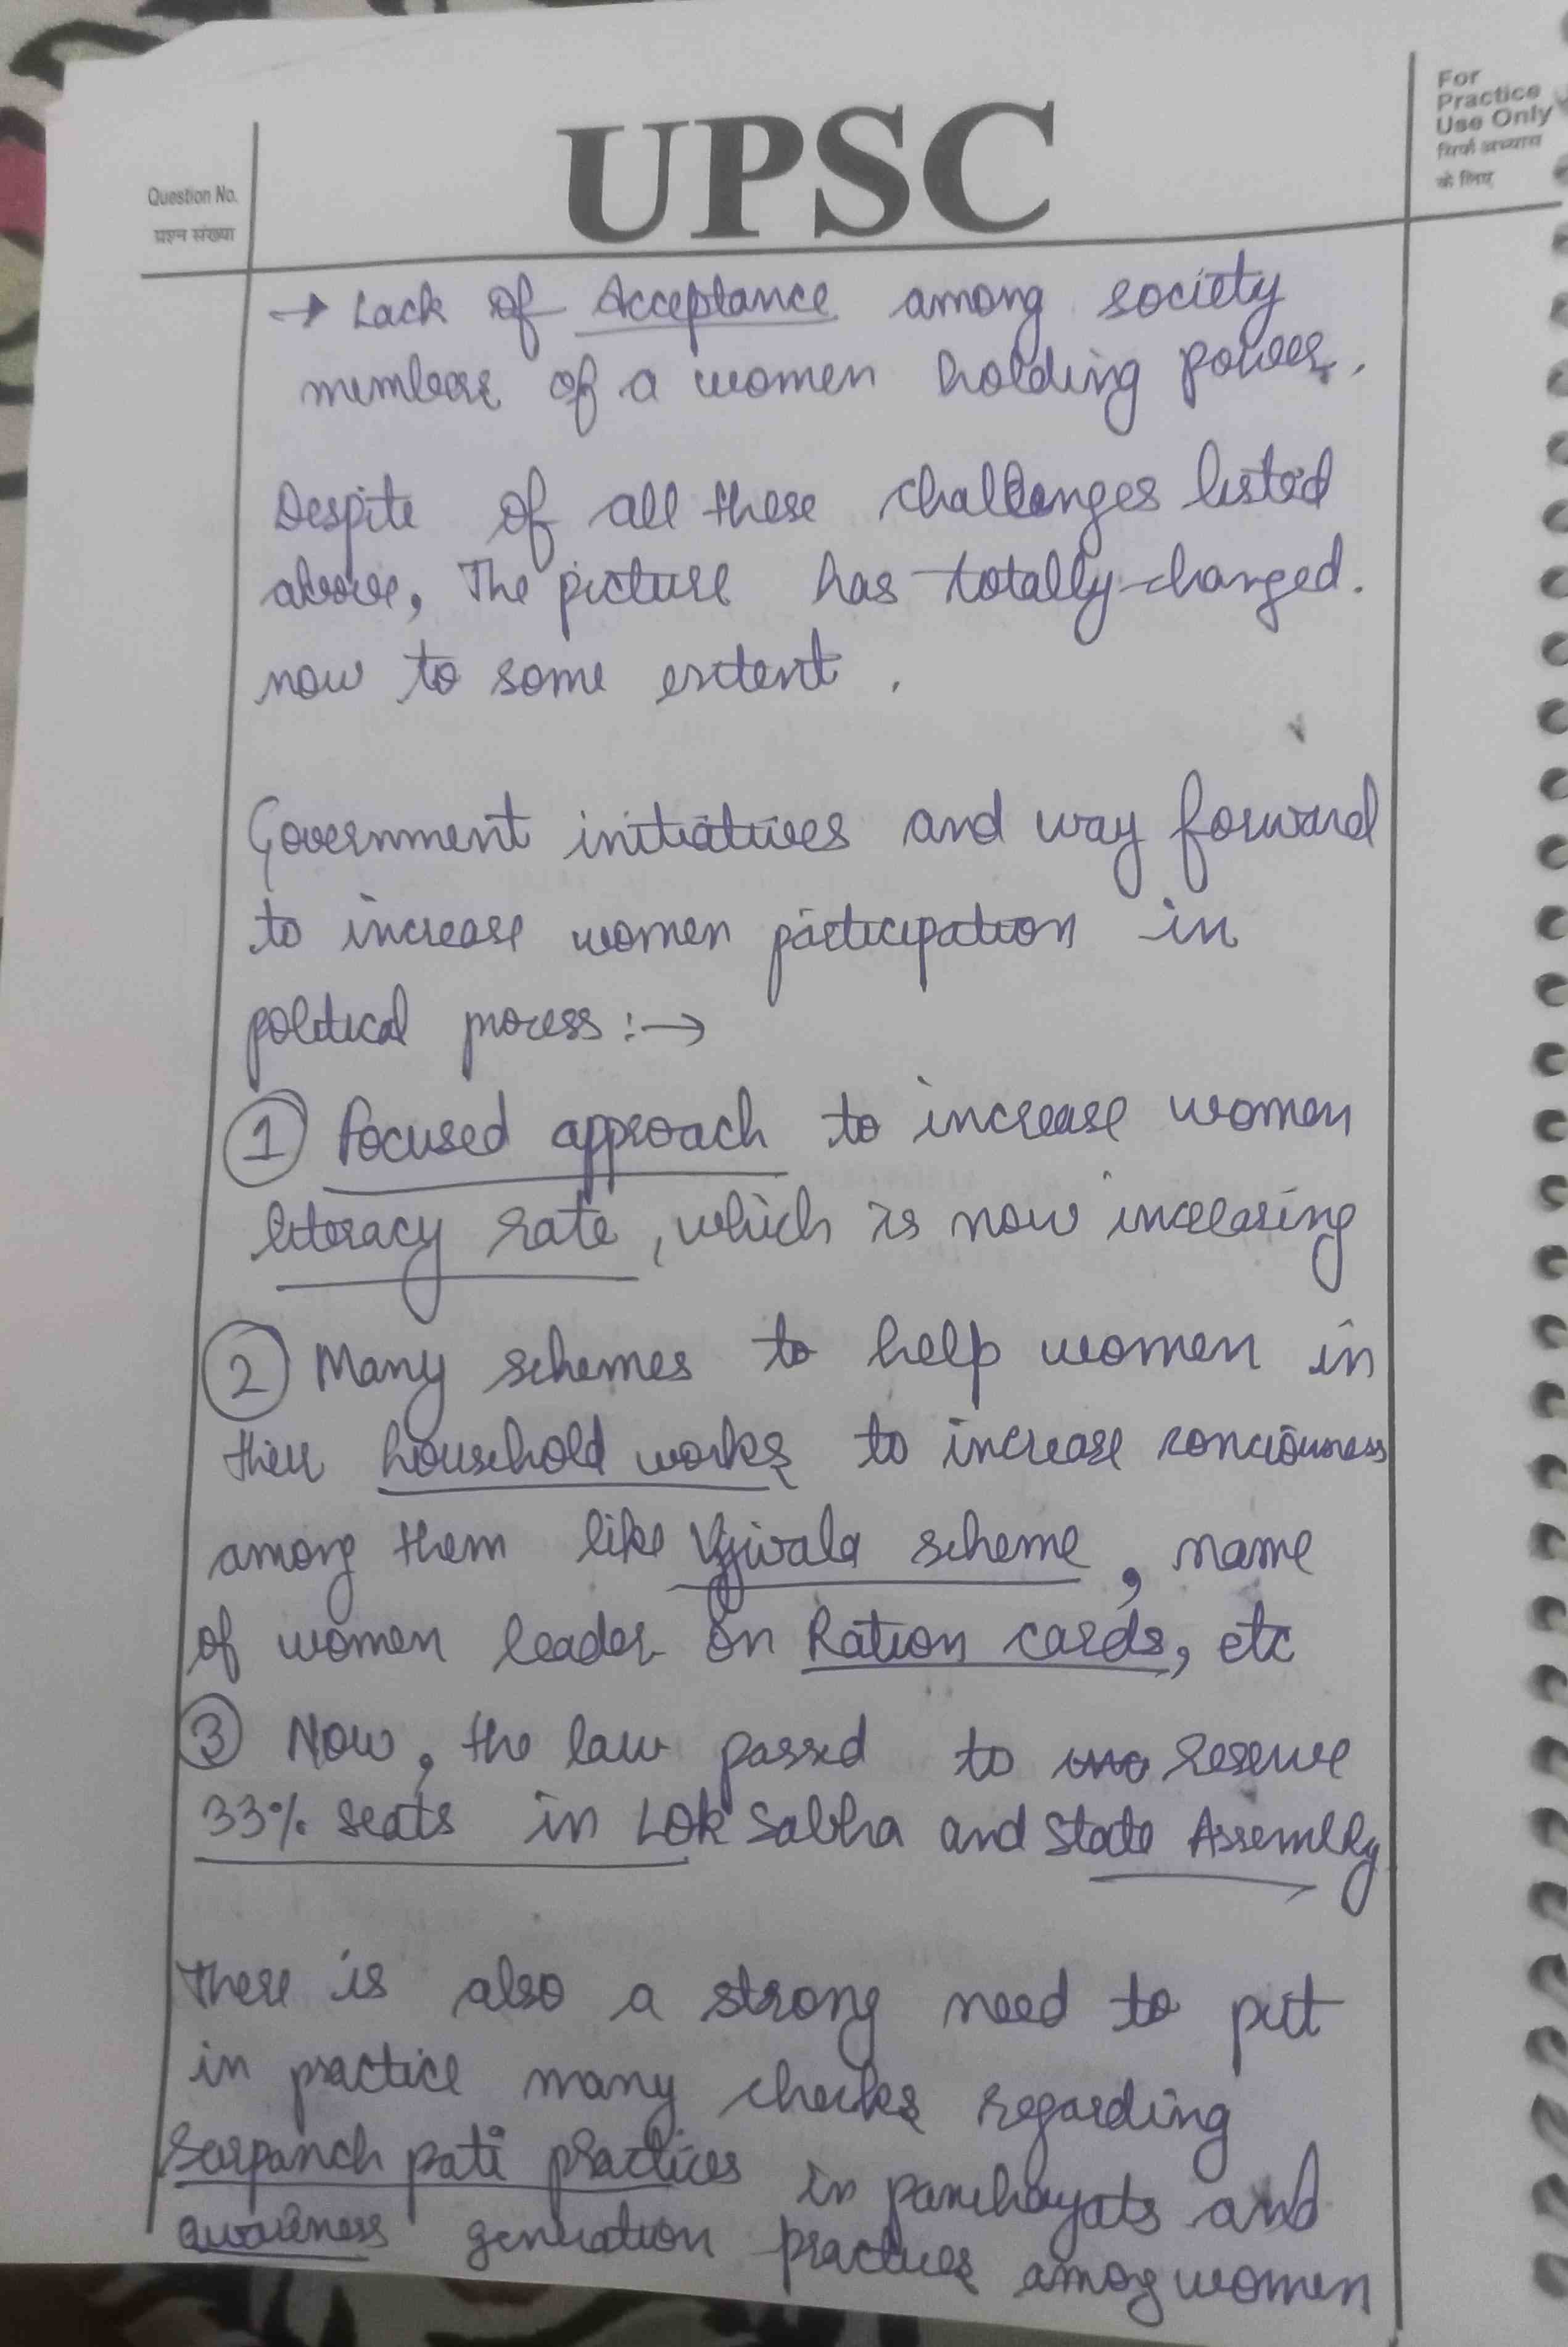 For
Practice
Use Only
सिर्फ अभ्यास
के लिए
UPSC
Question No.
प्रश्न संख्या
→ Lack of Acceptance among society
members of a women holding power.
Despite of all these challenges listed
above, The picture has totally changed.
now to some extent.
Government initiatives and way forward
to increase women participation in
political process :→
① Focused approach to increase women
literacy rate, which is now increasing
② Many schemes to help women in
their household works to increase conciousness
among them like Ujjwala scheme, name
of women leader on Ration cards, etc
③ Now, the law passed to reserve
33% seats in Lok Sabha and State Assembly
There is also a strong need to put
in practice many checks regarding
Sarpanch pati practices in panchayats and
awareness generation practices among women